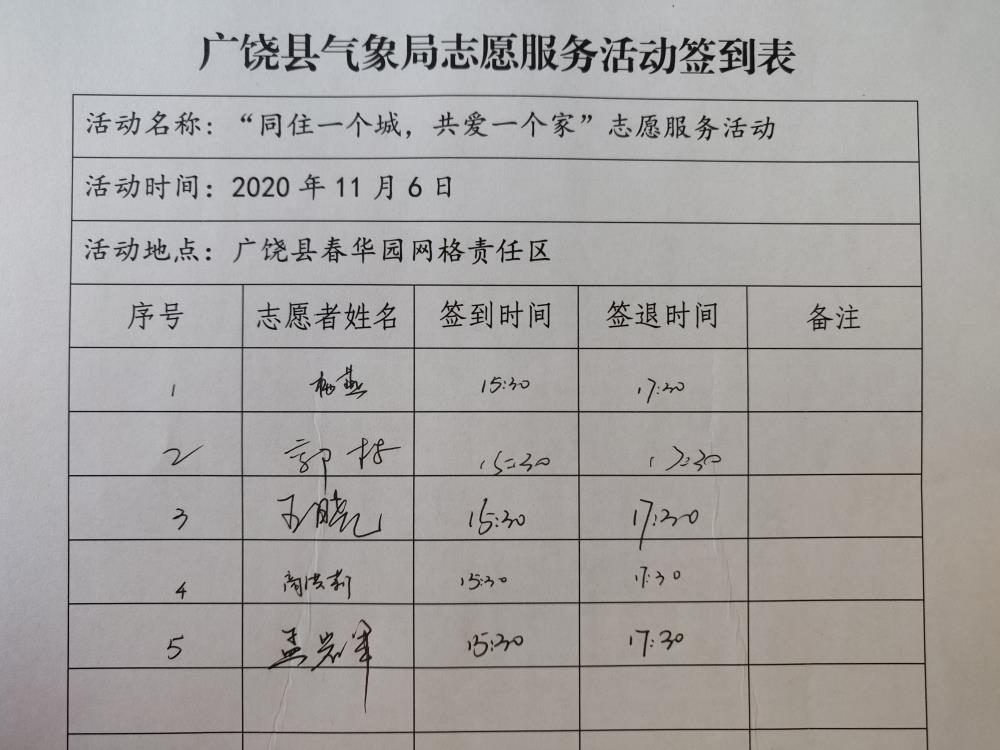 广饶县气象局志愿服务活动签到表
活动名称：“同住一个城，共爱一个家”志愿服务活动
活动时间：2020 年 11 月 6 日
活动地点：广饶县春华园网格责任区
序号 志愿者姓名 签到时间 签退时间 备注
1 杨燕 15:30 17:30
2 郭 15:30 17:30
3 王晓 15:30 17:30
4 商洪莉 15:30 17:30
5 孟岩军 15:30 17:30